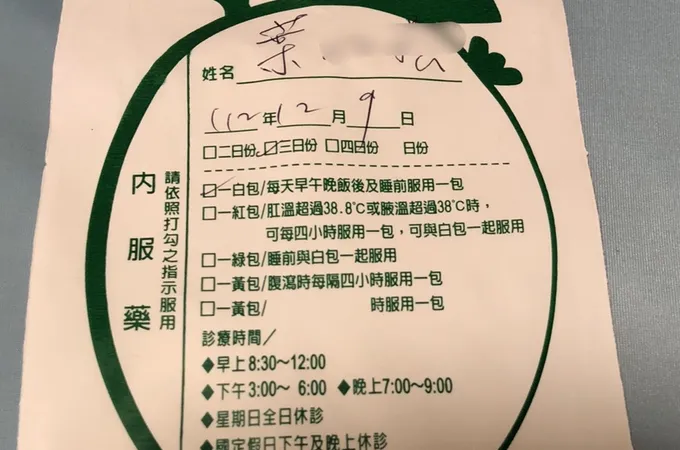 姓名 葉
112年12月9日
□二日份 ☑三日份 □四日份 日份
內服藥
請依照打勾之指示服用
☑一白包/每天早午晚飯後及睡前服用一包
□一紅包/肛溫超過38.8℃或腋溫超過38℃時，
可每四小時服用一包，可與白包一起服用
□一綠包/睡前與白包一起服用
□一黃包/腹瀉時每隔四小時服用一包
□一黃包/ 時服用一包
診療時間／
◆早上8:30～12:00
◆下午3:00～ 6:00 ◆晚上7:00～9:00
◆星期日全日休診
◆國定假日下午及晚上休診